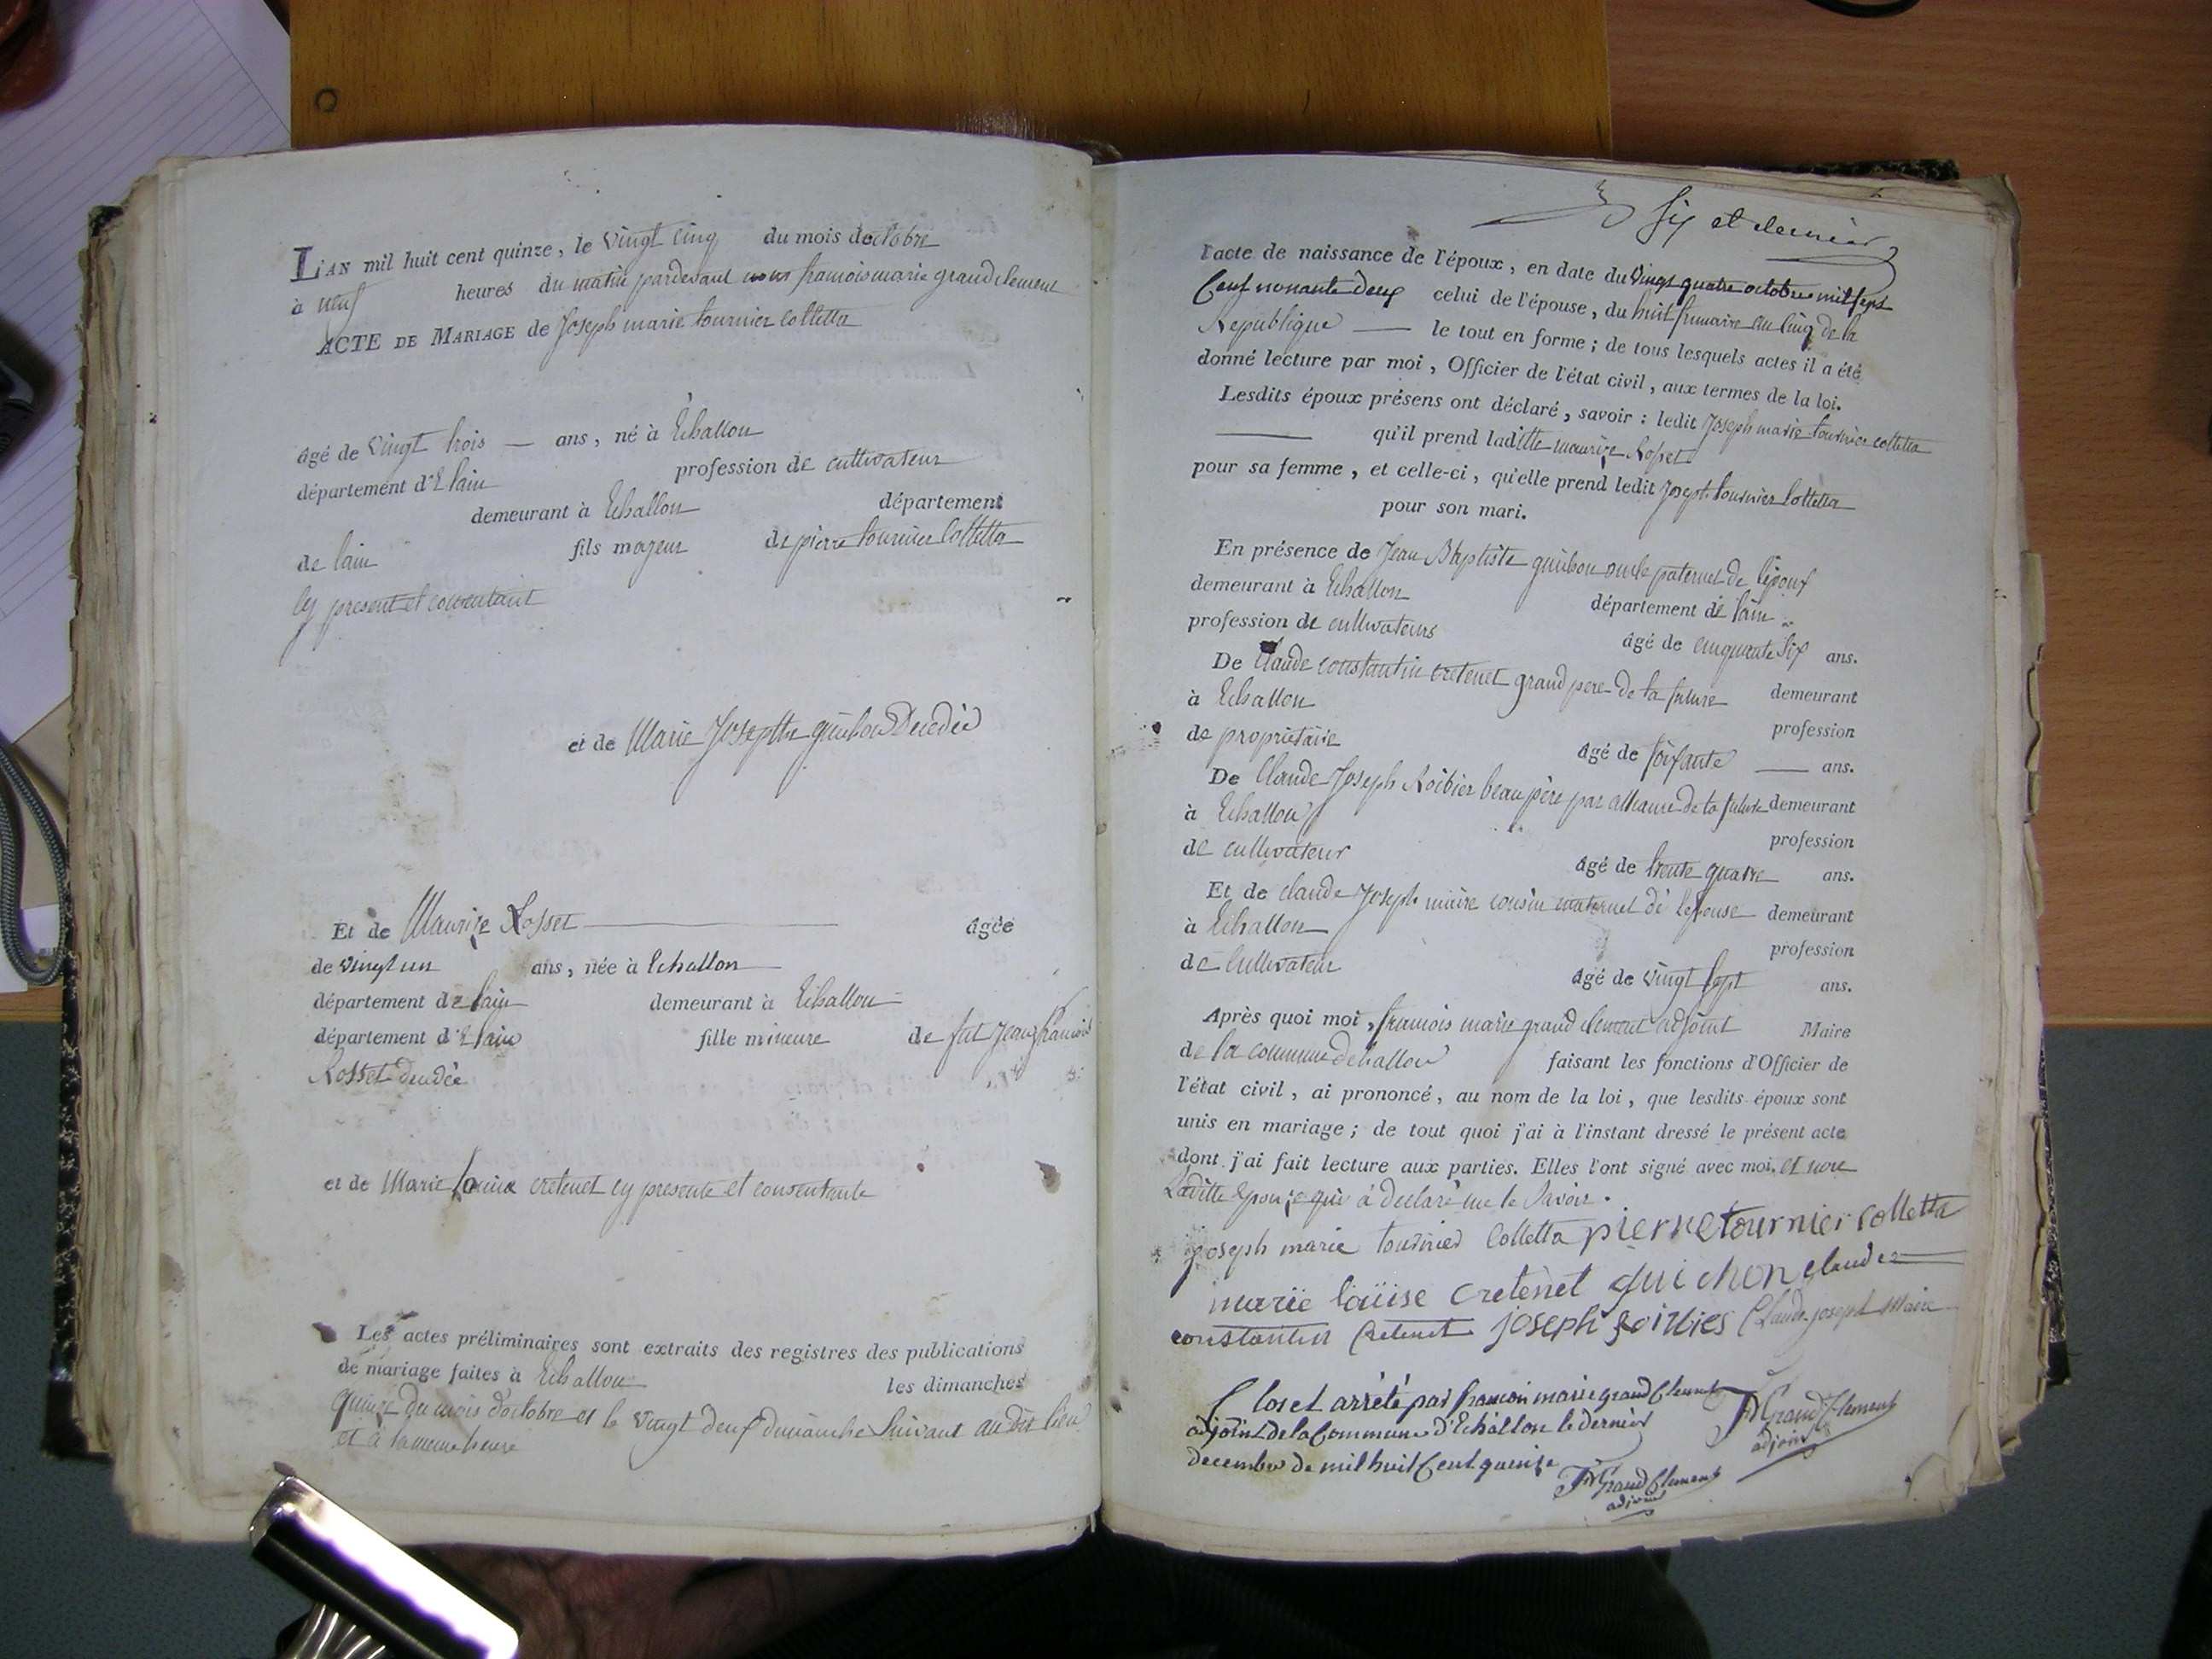 L'AN mil huit cent quinze, le vingt cinq du mois doctobre
à neuf heures du matin pardevant nous francois marie grandclement
ACTE DE MARIAGE de Joseph marie tournier colletta
âgé de vingt trois — ans, né à Echallon
département d'E lain profession de cultivateur
demeurant à Echallon département
de lain fils majeur de pierre tournier Colletta
cy present et consentant
et de Marie Josephte guichon Decedée
Et de Maurize Rosset âgée
de vingt un ans, née à Echallon
département de lain demeurant à Echallon
département d'E lain fille mineure de fut Jean francois
Rosset decedée
et de Marie Louise cretenet cy presente et consentante
Les actes préliminaires sont extraits des registres des publications
de mariage faites à Echallon les dimanches
quinze du mois d'octobre et le vingt deux dimanche Suivant au dit lieu
et à la meme heure
Six et dernier
l'acte de naissance de l'époux, en date du vingt quatre octobre mil sept
Cent nonante deux celui de l'épouse, du huit frimaire an cinq de la
Republique — le tout en forme ; de tous lesquels actes il a été
donné lecture par moi, Officier de l'état civil, aux termes de la loi.
Lesdits époux présens ont déclaré, savoir : ledit Joseph marie tournier colletta
— qu'il prend laditte maurize Rosset
pour sa femme, et celle-ci, qu'elle prend ledit Joseph tournier Colletta
pour son mari.
En présence de Jean Baptiste guichon oncle paternel de l'époux
demeurant à Echallon département de lain
profession de cultivateurs âgé de cinquante Six ans.
De Claude constantin cretenet grand pere de la future demeurant
à Echallon profession
de proprietaire âgé de soixante — ans.
De Claude Joseph Roibier beau père par alliance de la future demeurant
à Echallon profession
de cultivateur âgé de trente quatre ans.
Et de claude Joseph maire cousin maternel de lepouse demeurant
à Echallon profession
de Cultivateur âgé de vingt Sept ans.
Après quoi moi, francois marie grand clement adjoint Maire
de la commune dechallon faisant les fonctions d'Officier de
l'état civil, ai prononcé, au nom de la loi, que lesdits époux sont
unis en mariage ; de tout quoi j'ai à l'instant dressé le présent acte
dont j'ai fait lecture aux parties. Elles l'ont signé avec moi. et non
Laditte Epouze qui à declaré ne le Savoir.
joseph marie tournier Colletta pierre tournier colletta
marie loüise cretenet guichon claude
constantin Cretenet joseph Claude joseph Maire
Clos et arrêté par francoi marie grand Clement
adjoint de la Commune d'Echallon le dernier
decembre de mil huit Cent quinze
FM Grand Clement
adjoint
FM Grand Clement
adjoint